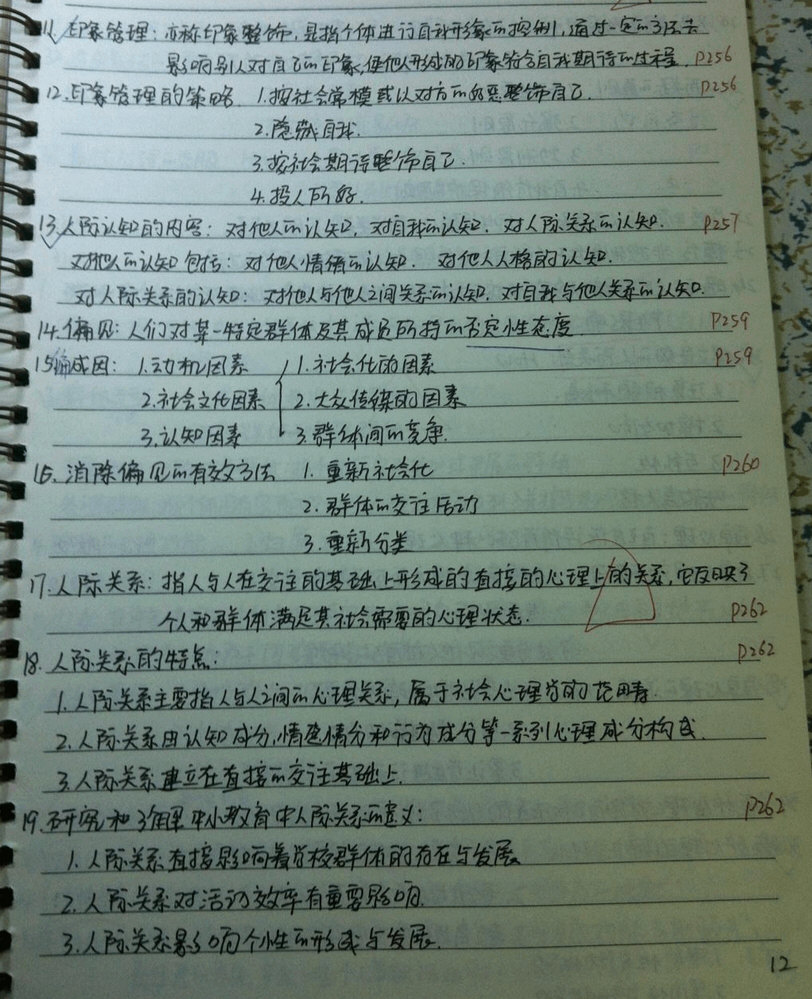 11. 印象管理：亦称印象整饰，是指个体进行自我形象的控制，通过一定的方法去
影响别人对自己的印象，使他人形成的印象符合自我期待的过程. P256
12. 印象管理的策略 1. 按社会常模或以对方的好恶整饰自己. P256
2. 隐藏自我.
3. 按社会期待整饰自己.
4. 投人所好.
13. 人际认知的内容：对他人的认知，对自我的认知. 对人际关系的认知. P257
对他人的认知包括：对他人情绪的认知. 对他人人格的认知.
对人际关系的认知：对他人与他人之间关系的认知. 对自我与他人关系的认知.
14. 偏见：人们对某一特定群体及其成员所持的否定性态度 P259
15. 偏成因：1. 动机因素 1. 社会化的因素 P259
2. 社会文化因素 2. 大众传媒的因素
3. 认知因素 3. 群体间的竞争.
16. 消除偏见的有效方法 1. 重新社会化 P260
2. 群体的交往活动
3. 重新分类
17. 人际关系：指人与人在交往的基础上形成的直接的心理上的关系，它反映了
个人和群体满足其社会需要的心理状态. P262
18. 人际关系的特点： P262
1. 人际关系主要指人与人之间的心理关系，属于社会心理学的范畴.
2. 人际关系由认知成分，情感情分和行为成分等一系列心理成分构成.
3. 人际关系建立在直接的交往基础上.
19. 研究和 中小教育中人际关系的意义： P262
1. 人际关系直接影响着学校群体的存在与发展
2. 人际关系对活动效率有重要影响.
3. 人际关系影响个性的形成与发展.
12